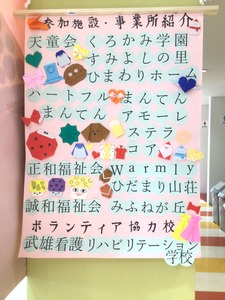 参加施設・事業所紹介
天童会 くろかみ学園
すみよしの里
ひまわりホーム
ハートフル まんてん
まんてん アモーレ
ステラ
コア
正和福祉会 Warmly
ひだまり山荘
誠和福祉会 みふねが丘
ボランティア協力校
武雄看護リハビリテーション
学校